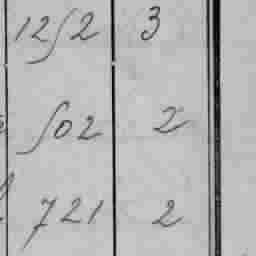 1252 3
502 2
721 2